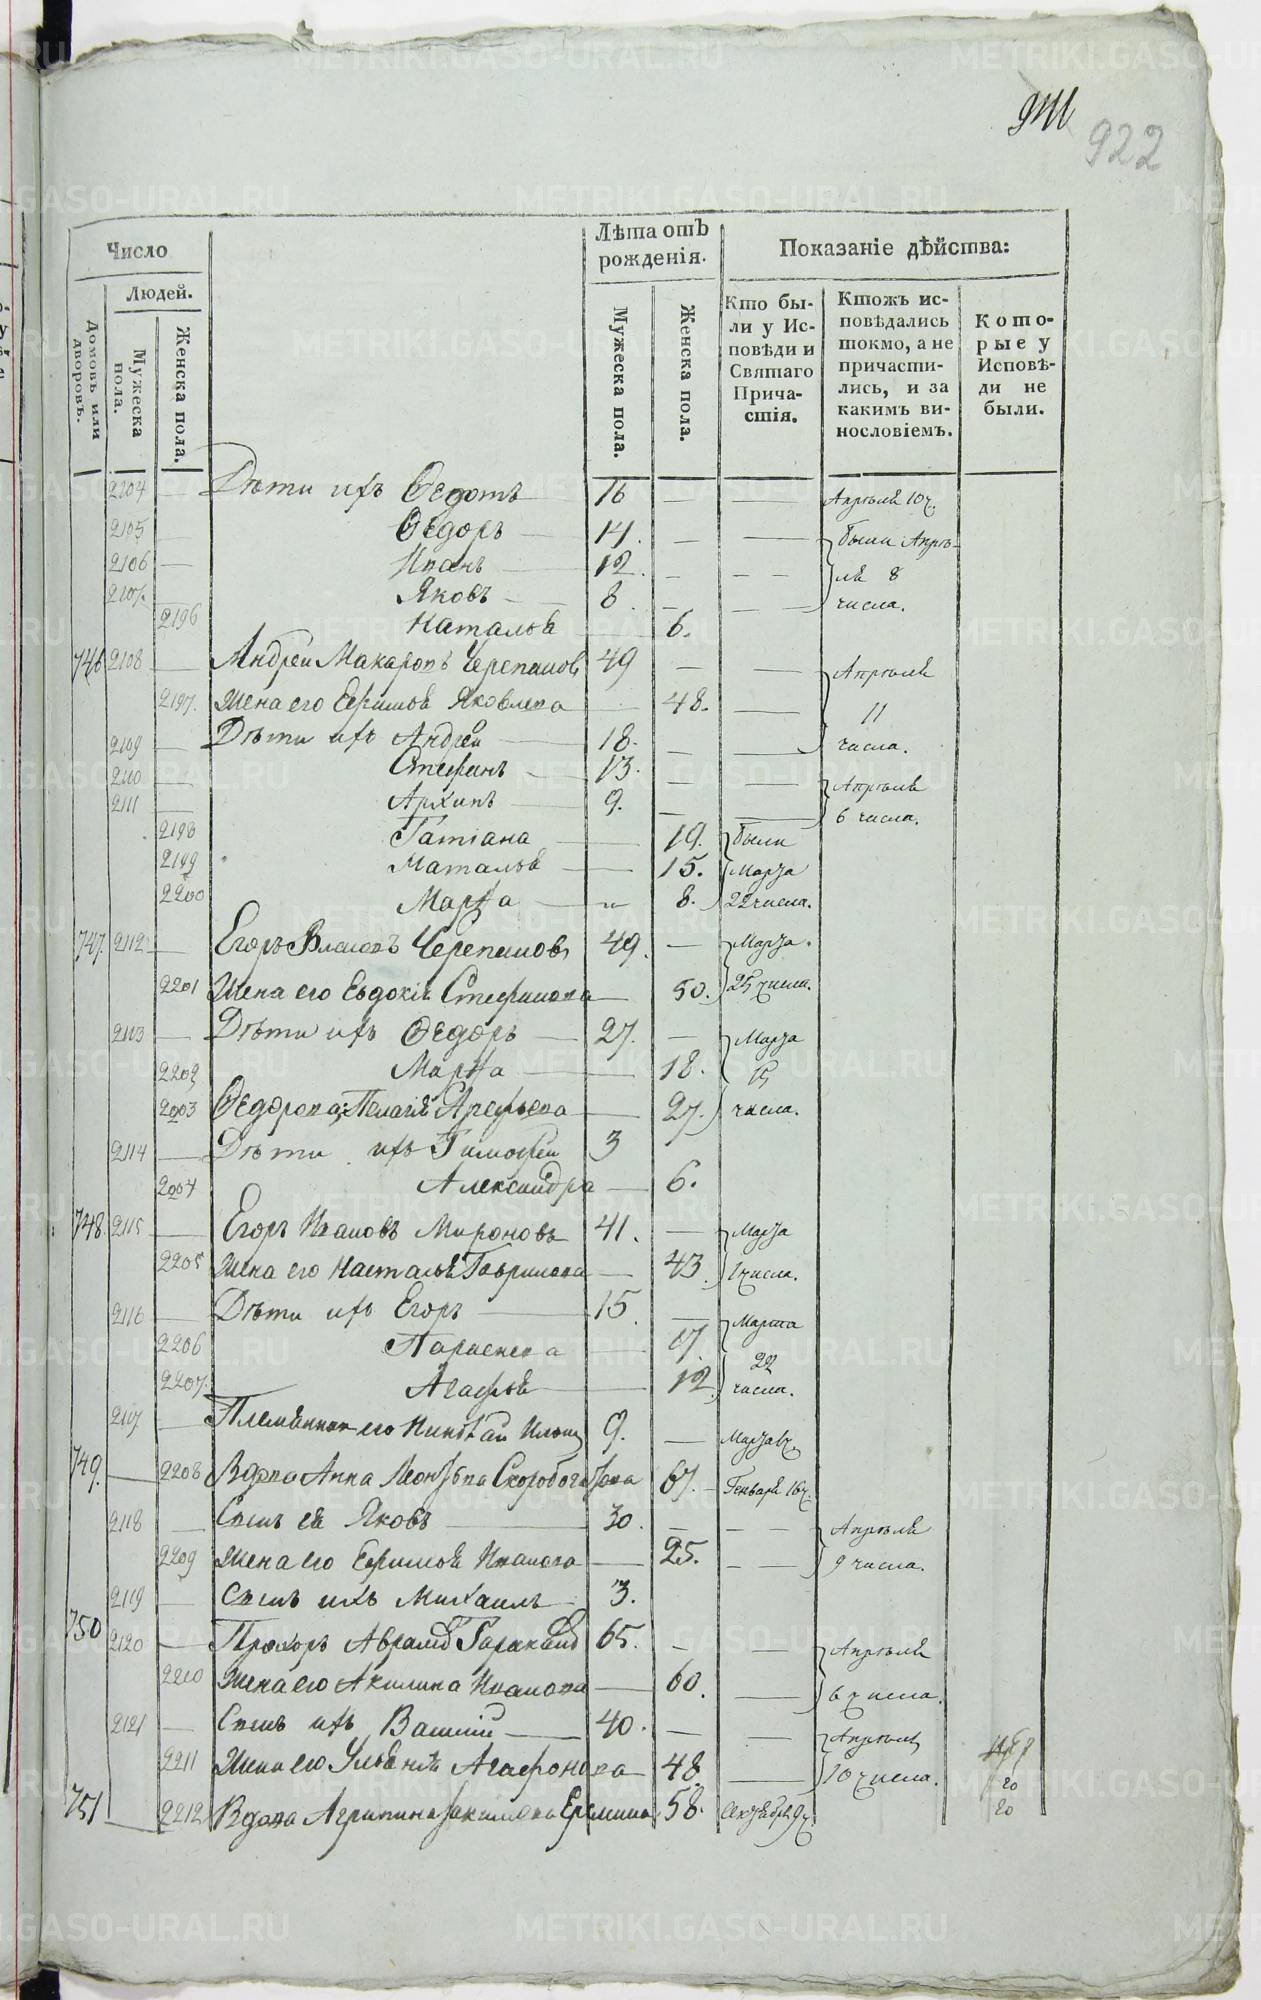 922
Число
Лѣта отъ рожденія.
Показаніе дѣйства:
Людей.
Домовъ или дворовъ.
Мужеска пола.
Женска пола.
Мужеска пола.
Женска пола.
Кто были у Исповѣди и Святаго Причастія.
Ктожъ исповѣдались токмо, а не причастились, и за какимъ винословіемъ.
Которые у Исповѣди не были.
2104 Дѣти ихъ Ѳедотъ 16 Апрѣля 10 ч.
2105 Ѳедоръ 14. были Апрѣ-
2106 Иванъ 12. ля 8
2107. Яковъ 8 числа.
2196 Наталья 6.
746 2108 Андреи Макаровъ Черепановъ 49 Апрѣля
2197. Жена его Ефимья Яковлева 48. 11
2109 Дѣти ихъ Андреи 18. числа.
2110 Стефанъ 13. Апрѣля
2111 Архипъ 9. 6 числа.
2198 Татіана 19. были
2199 Наталья 15. Марта
2200 Марѳа 8. 22 числа.
747. 2112 Егоръ Власовъ Черепановъ 49. Марта
2201 Жена его Евдокія Стефанова 50. 25 числа.
2113 Дѣти ихъ Ѳедоръ 27. Марта
2202 Марѳа 18. 15
2003 Ѳедорова: Пелагія Арефьева 27. числа.
2114 Дѣти ихъ Тимофеи 3
2004 Александра 6.
748. 2115 Егоръ Ивановъ Мироновъ 41. Марта
2205 Жена его Насталья Гаврилова 43. 1 числа.
2116 Дѣти ихъ Егоръ 15. Марта
2206 Параскева 17. 22
2207. Агафья 12. числа.
2117 Племянник его Николаи 9.
749. 2208 Вдова Анна Леонтьева Скоробогатова 67. Генваря 16 ч.
2118 Сынъ ея Яковъ 30. Апрѣля
2209 Жена его Ефимья Иванова 25. 9 числа.
2119 Сынъ ихъ Михаилъ 3.
750 2120 Прохоръ 65. Апрѣля
2210 Жена его Акилина Иванова 60. 6 числа.
2121 Сынъ ихъ Василіи 40. Апрѣля
2211 Жена его Ульянія Агафонова 48. 10 числа. 20
751 2212 Вдова Агрипина Еремина 58. 20
METRIKI.GASO-URAL.RU